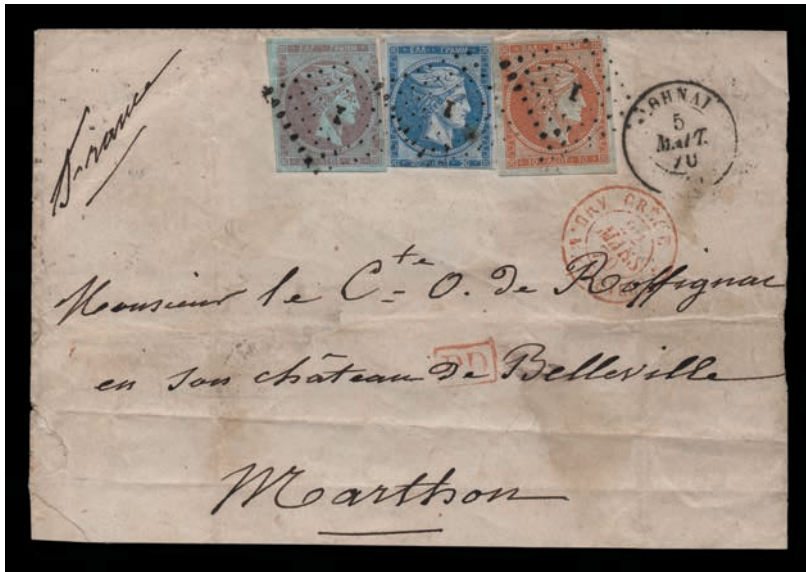 ΕΛΛ. ΓΡΑΜΜ.
ΕΛΛ. ΓΡΑΜΜ.
ΕΛΛ. ΓΡΑΜΜ.
1
1
1
ΑΘΗΝΑΙ
5
ΜΑΡΤ.
70
France
GRECE
MARS
Monsieur le Cte O. de Roffignac
PD
en son château de Belleville
Marthon